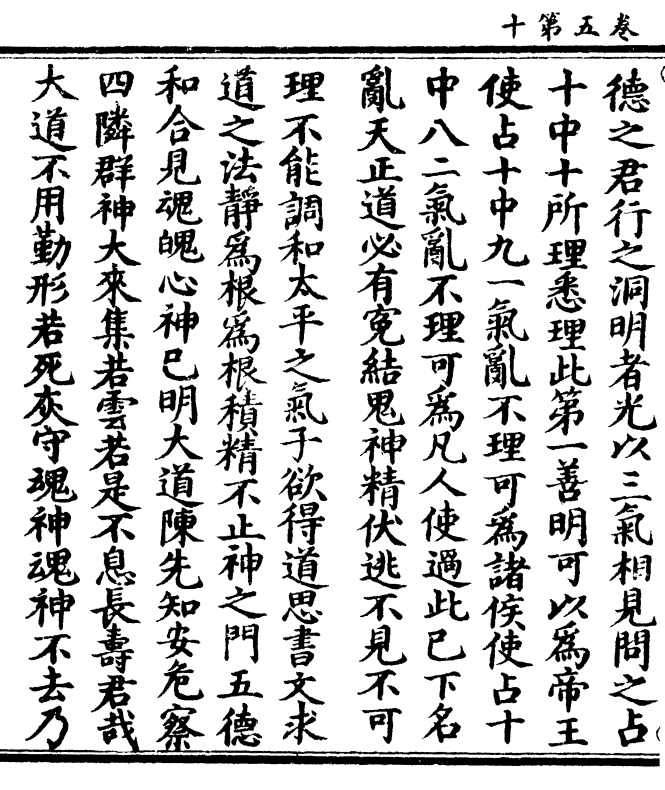 卷五第十
德之君行之洞明者光以三氣相見問之占
十中十所理悉理此第一善明可以爲帝王
使占十中九一氣亂不理可爲諸侯使占十
中八二氣亂不理可爲凡人使過此已下名
亂天正道必有寃結鬼神精伏逃不見不可
理不能調和太平之氣子欲得道思書文求
道之法靜爲根爲根積精不止神之門五德
和合見魂魄心神已明大道陳先知安危察
四隣群神大來集若雲若是不息長壽君哉
大道不用勤形若死灰守魂神魂神不去乃